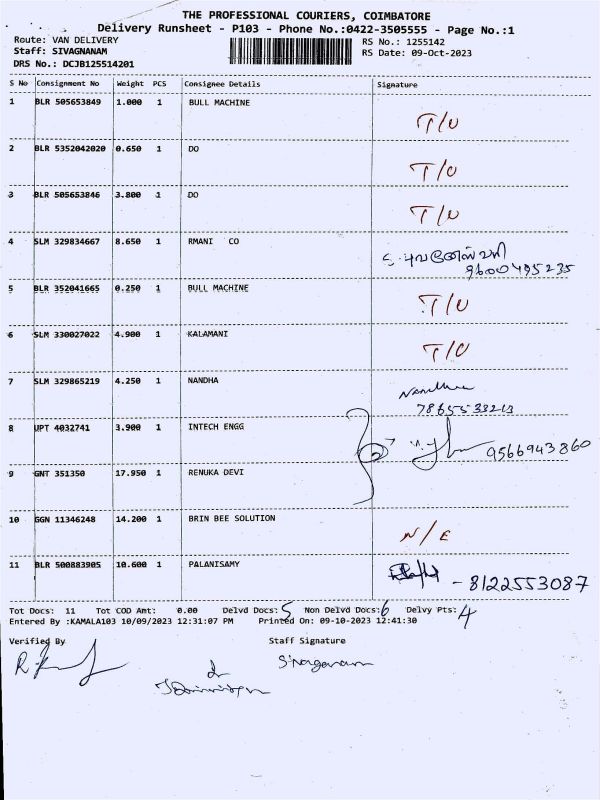 THE PROFESSIONAL COURIERS, COIMBATORE
Delivery Runsheet - P103 - Phone No.:0422-3505555 - Page No.:1
Route: VAN DELIVERY RS No.: 1255142
Staff: SIVAGNANAM RS Date: 09-Oct-2023
DRS No.: DCJB125514201
S No Consignment No Weight PCS Consignee Details Signature
1 BLR 505653849 1.000 1 BULL MACHINE
T/U
2 BLR 5352042020 0.650 1 DO
T/U
3 BLR 505653846 3.800 1 DO
T/U
4 SLM 329834667 8.650 1 RMANI CO
9600495235
5 BLR 352041665 0.250 1 BULL MACHINE
T/U
6 SLM 330027022 4.900 1 KALAMANI
T/U
7 SLM 329865219 4.250 1 NANDHA
Nandhu
7865533213
8 UPT 4032741 3.900 1 INTECH ENGG
9566943860
9 GNT 351350 17.950 1 RENUKA DEVI
10 GGN 11346248 14.200 1 BRIN BEE SOLUTION
N/E
11 BLR 500883905 10.600 1 PALANISAMY
- 8122553087
Tot Docs: 11 Tot COD Amt: 0.00 Delvd Docs: 5 Non Delvd Docs: 6 Delvy Pts: 4
Entered By :KAMALA103 10/09/2023 12:31:07 PM Printed On: 09-10-2023 12:41:30
Verified By Staff Signature
Sivagnanam